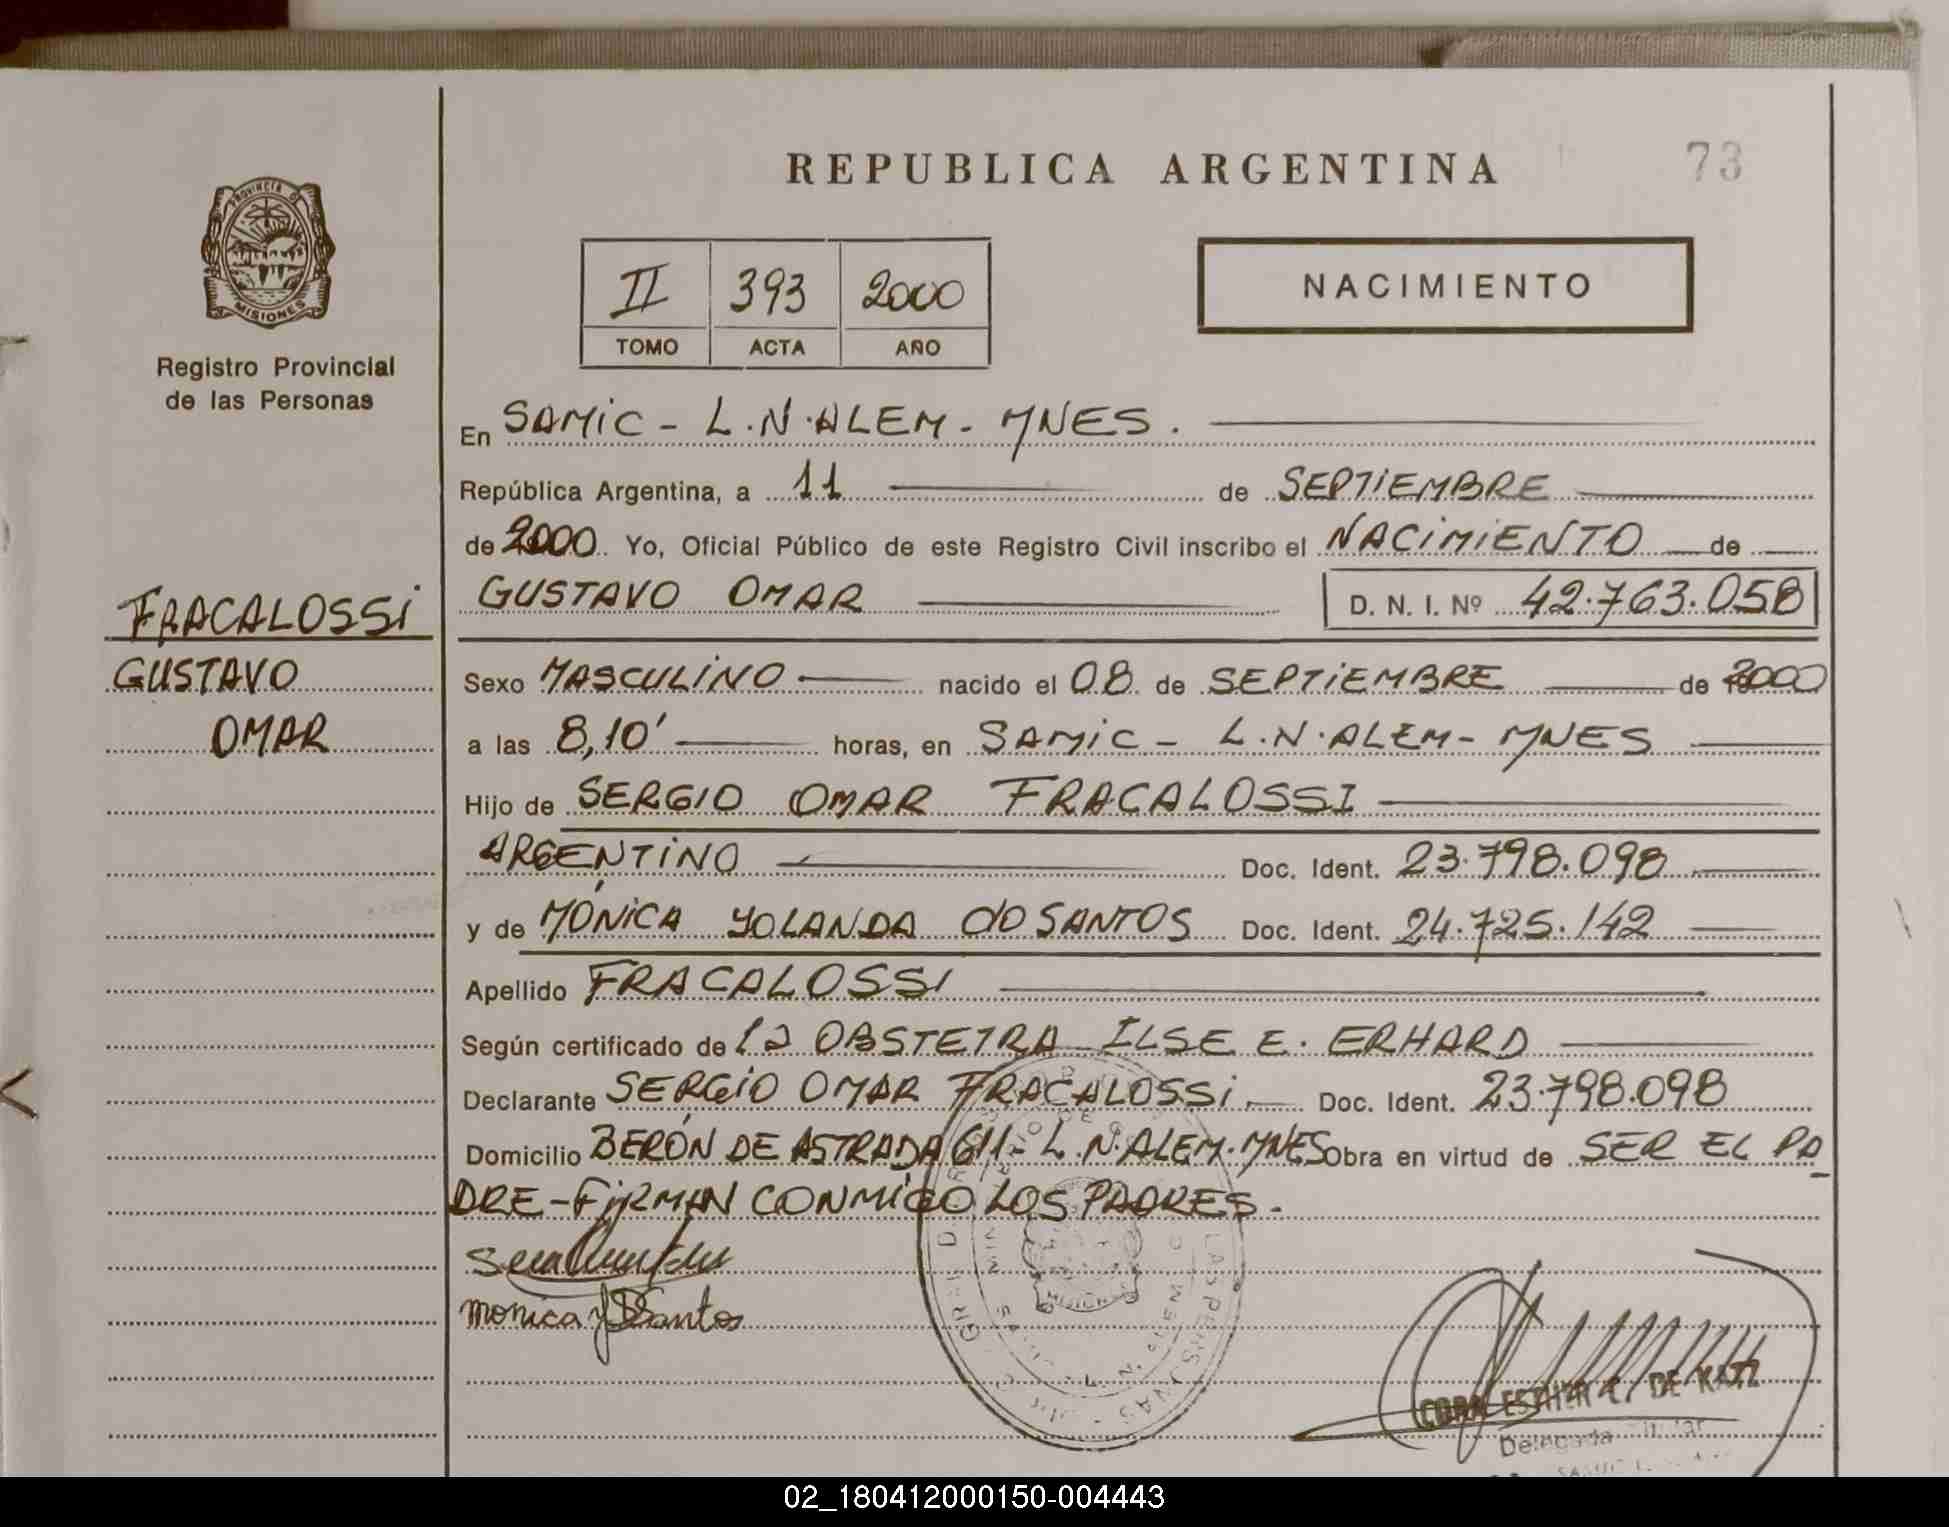 REPUBLICA ARGENTINA
73
PROVINCIA DE
MISIONES
Registro Provincial
de las Personas
II 393 2000
TOMO ACTA AÑO
NACIMIENTO
En SAMIC - L.N. ALEM - MNES.
República Argentina, a 11 de SEPTIEMBRE
de 2000. Yo, Oficial Público de este Registro Civil inscribo el NACIMIENTO de
GUSTAVO OMAR D. N. I. Nº 42.763.058
FRACALOSSI
GUSTAVO
OMAR
Sexo MASCULINO nacido el 08 de SEPTIEMBRE de 2000
a las 8,10' horas, en SAMIC - L.N. ALEM - MNES
Hijo de SERGIO OMAR FRACALOSSI
ARGENTINO Doc. Ident. 23.798.098
y de MÓNICA YOLANDA do SANTOS Doc. Ident. 24.725.142
Apellido FRACALOSSI
Según certificado de la OBSTETRA ILSE E. ERHARD
Declarante SERGIO OMAR FRACALOSSI. Doc. Ident. 23.798.098
Domicilio BERÓN DE ASTRADA 611 - L.N. ALEM. MNES Obra en virtud de SER EL PA
DRE - FIRMAN CONMIGO LOS PADRES.
Monica Y D Santos
ESTHER C. DE KATZ
Delegada Titular
02_180412000150-004443